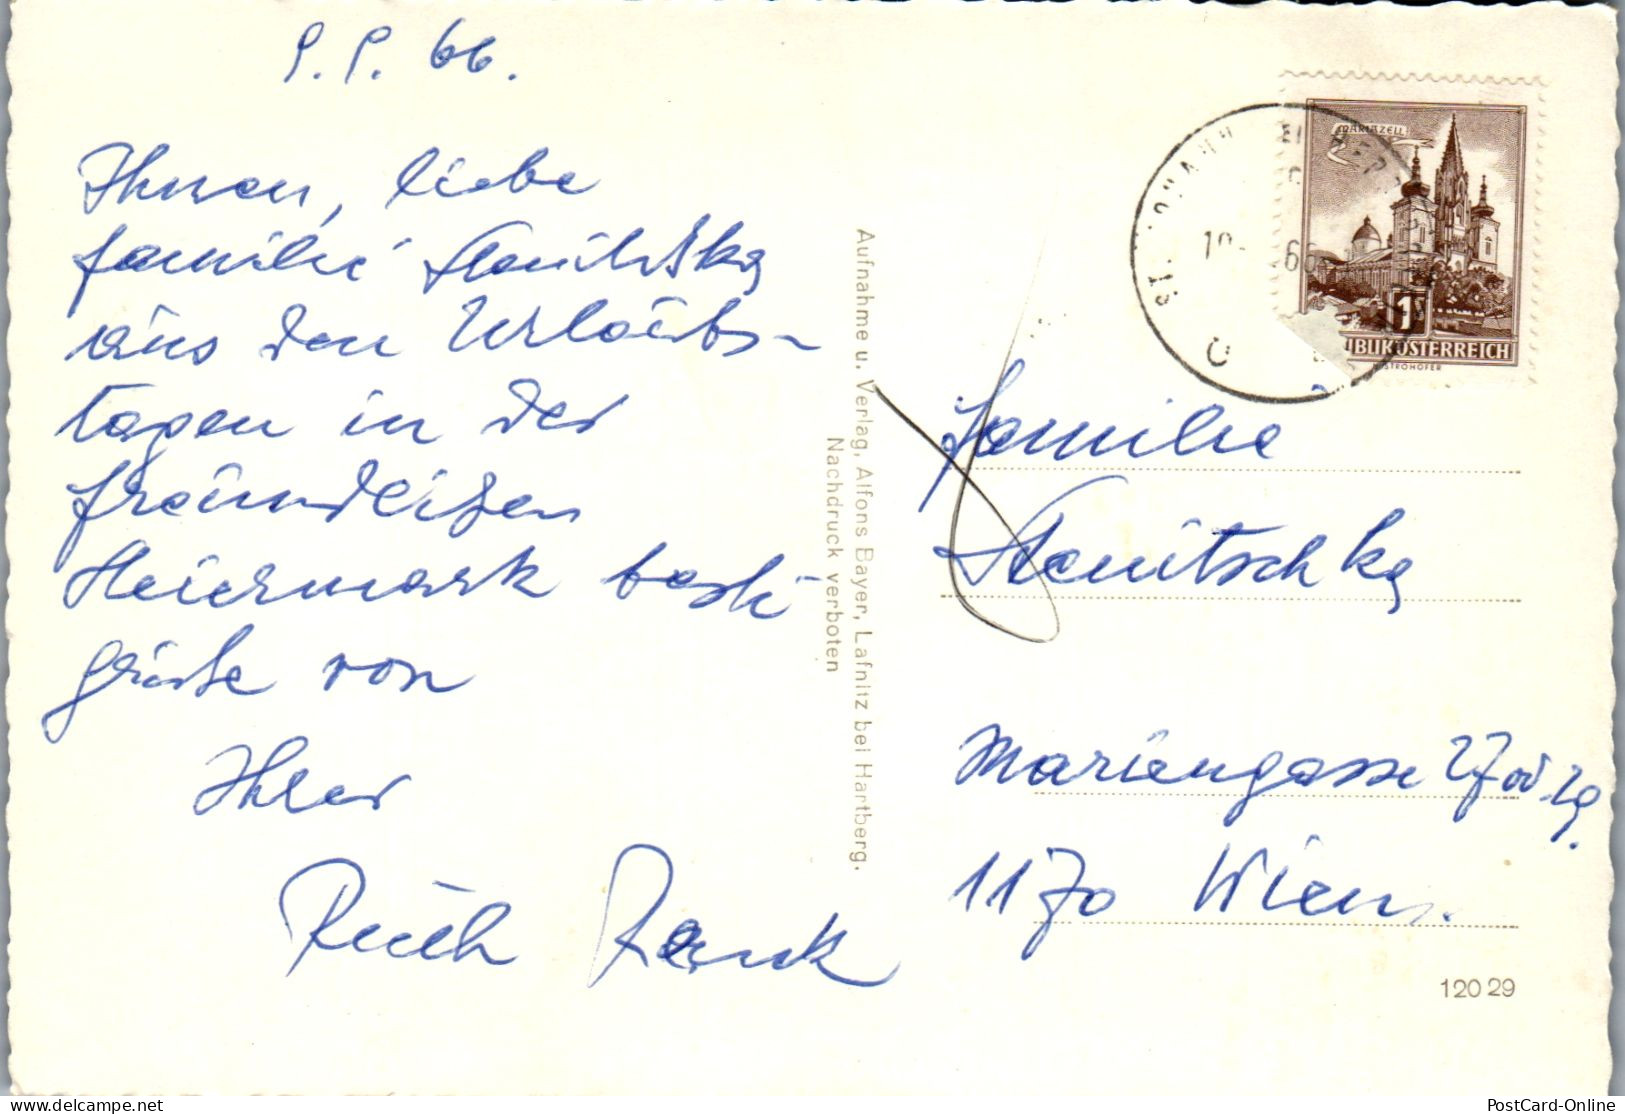 9. 9. 66.
Ihnen, liebe
Familie Stanitschka
aus den Urlaubs-
tagen in der
freundlichen
Steiermark beste
Grüße von
Ihrer
Ruth
Aufnahme u. Verlag, Alfons Bayer, Lafnitz bei Hartberg.
Nachdruck verboten
MARIAZELL
1
REPUBLIK ÖSTERREICH
STROHOFER
Familie
Stanitschka
Mariengasse 27
1170 Wien.
120 29
PostCard-Online